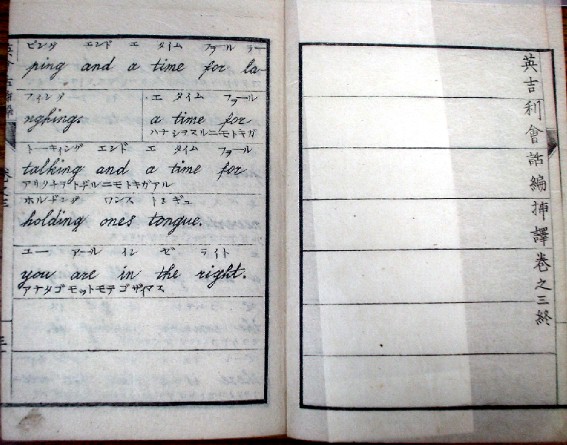 英吉利會話編挿譯卷之三終
ピング エンド エ タイム フヲル ラー
ping and a time for la-
フィング エ タイム フヲル
nghing. a time for
ハナシヲスルニモトキガ
トーキィング エンド エ タイム フヲル
talking and a time for
ホルヂング ワンス トンギュ
holding ones tongue.
ユー アール イン ゼ ライト
you are in the right.
アナタゴモットモデゴザイマス